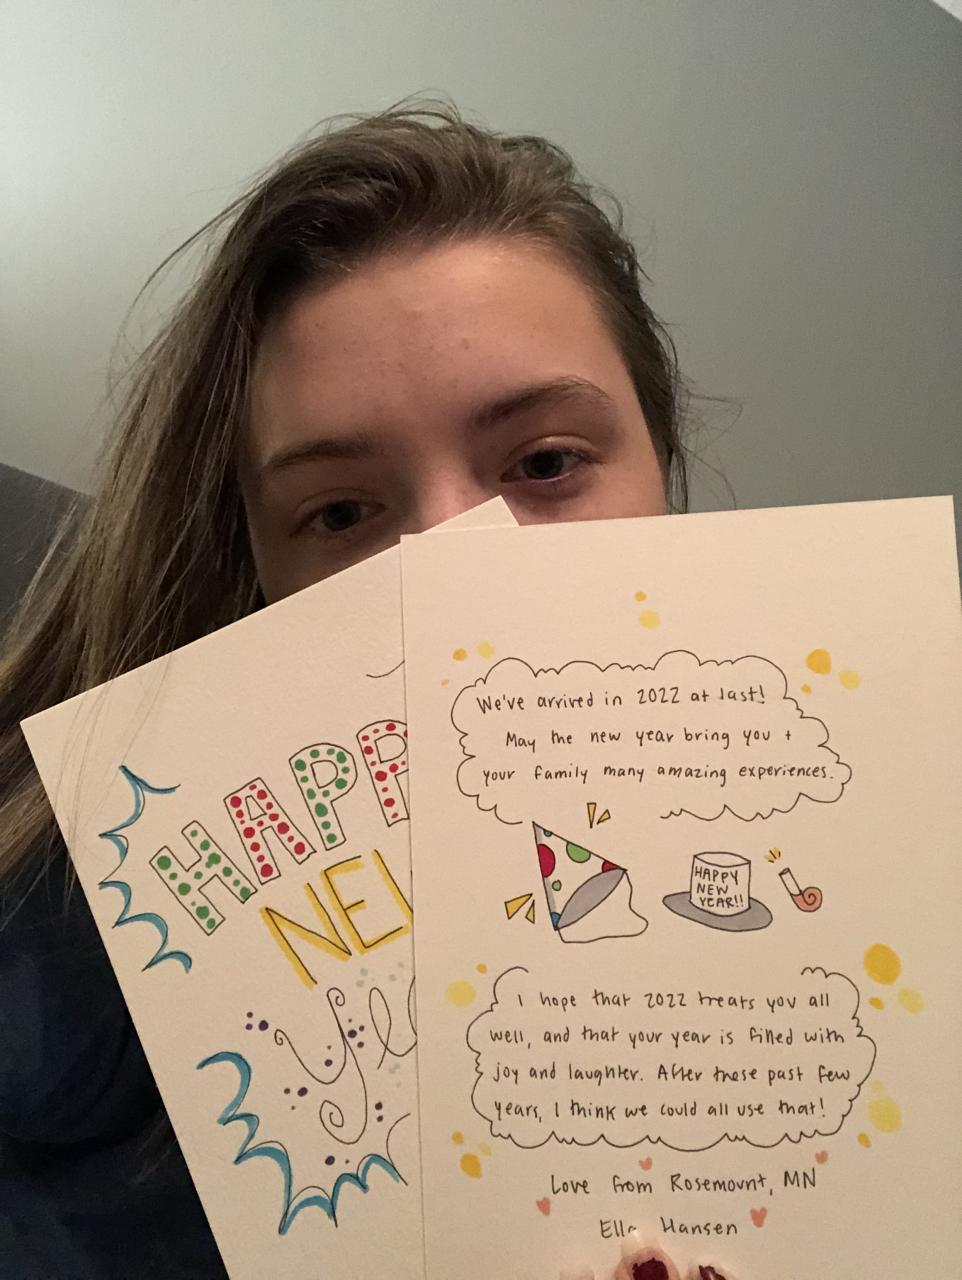 HAPP
NEW
Ye
We've arrived in 2022 at last!
May the new year bring you +
your family many amazing experiences.
HAPPY
NEW
YEAR!!
I hope that 2022 treats you all
well, and that your year is filled with
joy and laughter. After these past few
years, I think we could all use that!
Love from Rosemount, MN
Ella Hansen